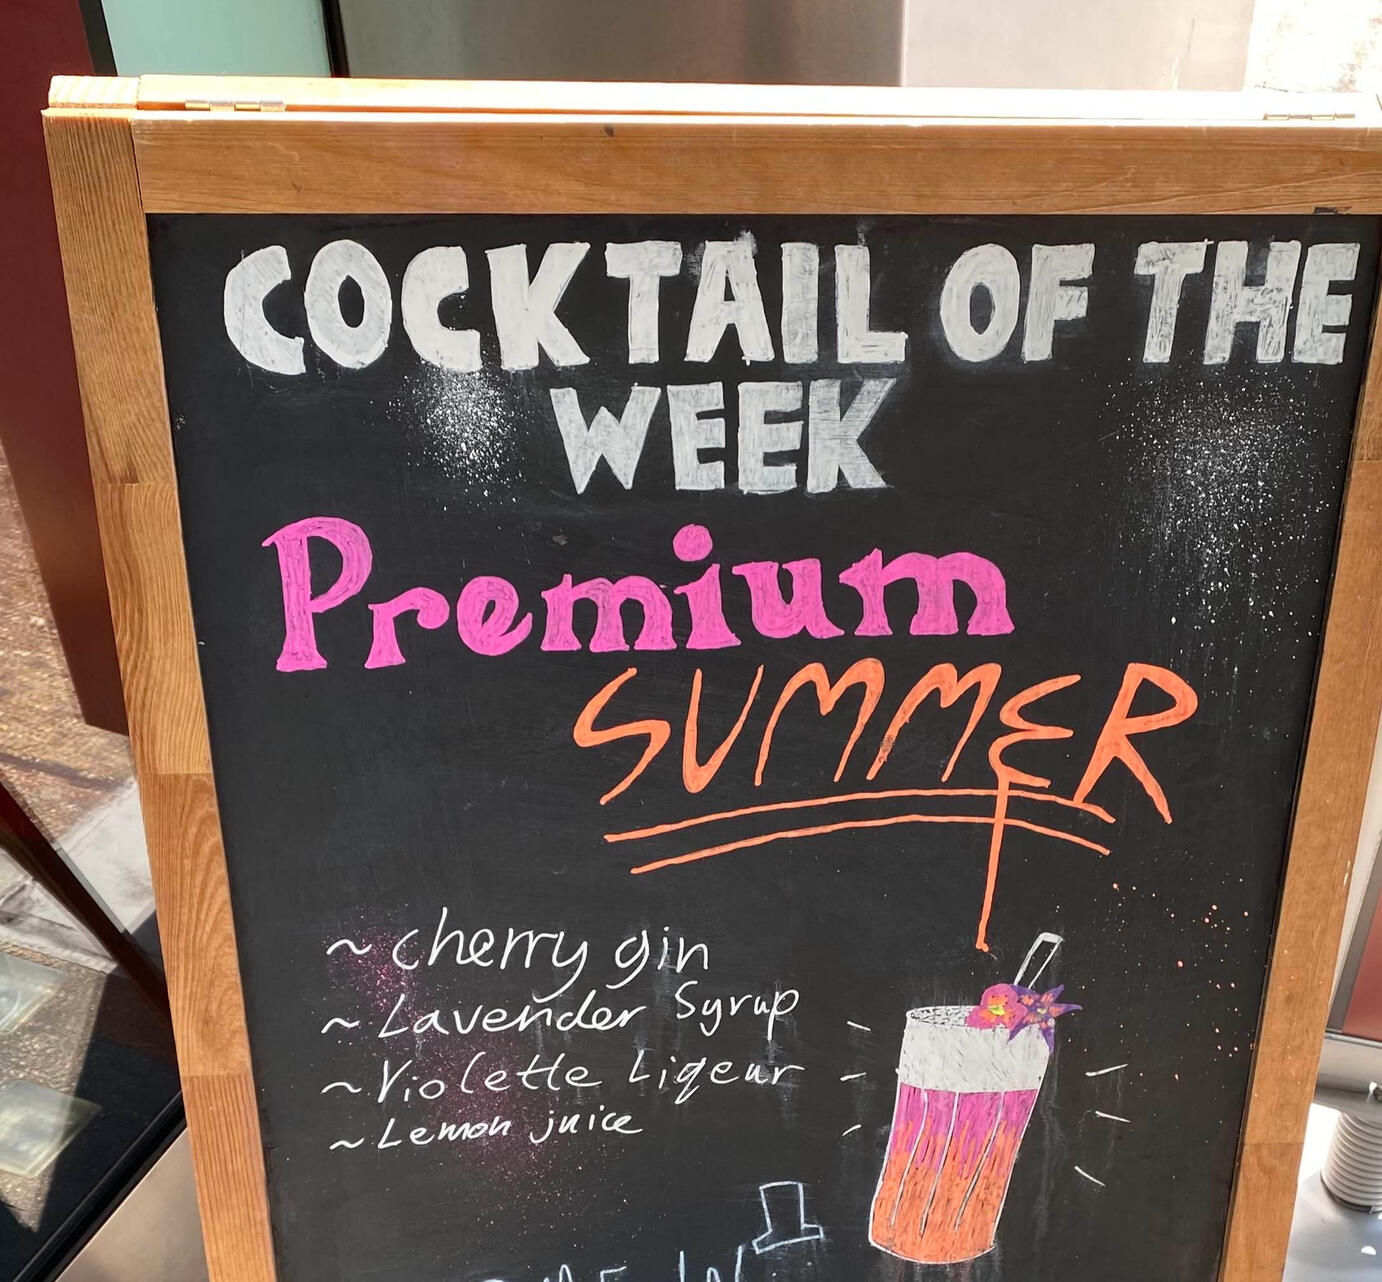 COCKTAIL OF THE
WEEK
Premium
SUMMER
~ cherry gin
~ Lavender Syrup
~ Violette Liqeur
~ Lemon juice